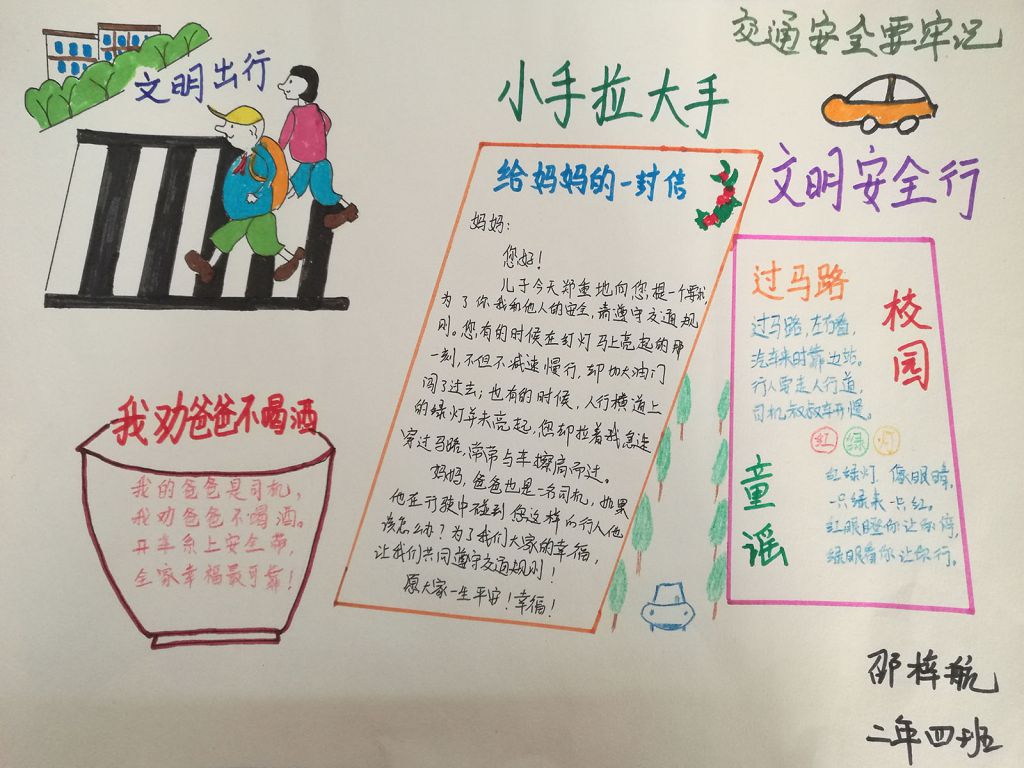 交通安全要牢记
小手拉大手
文明安全行
文明出行
给妈妈的一封信
妈妈:
您好!
儿子今天郑重地向您提一个要求,
为了你我和他人的安全,请遵守交通规
则。您有的时候在红灯马上亮起的那
一刻,不但不减速慢行,却加大油门
闯了过去;也有的时候,人行横道上
的绿灯并未亮起,您却拉着我急速
穿过马路,常常与车擦肩而过。
妈妈,爸爸也是一名司机,如果
他在行驶中碰到您这样的行人他
该怎么办?为了我们大家的幸福,
让我们共同遵守交通规则!
愿大家一生平安!幸福!
我劝爸爸不喝酒
我的爸爸是司机,
我劝爸爸不喝酒。
开车系上安全带,
全家幸福最可靠!
校园
童谣
过马路
过马路,左右看,
汽车来时靠边站。
行人要走人行道,
司机叔叔车开慢。
红 绿 灯
红绿灯,像眼睛,
一只绿来一只红。
红眼瞪你让你停,
绿眼看你让你行。
邵梓航
二年四班